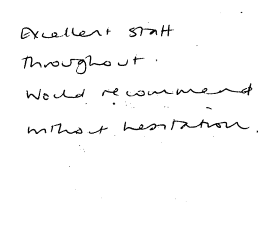 Excellent staff
throughout.
Would recommend
without hesitation.